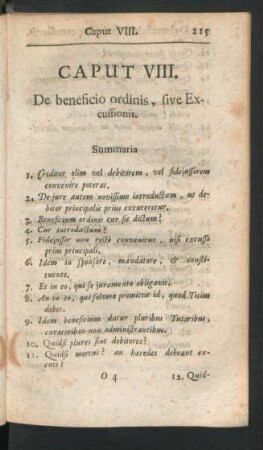 Caput VIII. 215
CAPUT VIII.
De beneficio ordinis, sive Ex-
cussionis.
Summaria
1. Creditor olim vel debitorem, vel fidejussorem
convenire poterat.
2. De jure autem novissimo introductum, ut de-
bitor principalis prius excuteretur.
3. Beneficium ordinis cur sic dictum?
4. Cur introductum?
5. Fidejussor non rectè convenitur, nisi excusso
prius principali.
6. Idem in sponsore, mandatore, & consti-
tuente.
7. Et in eo, qui se juramento obligavit.
8. An in eo, qui solvere promittit id, quod Titius
debet.
9. Idem beneficium datur pluribus Tutoribus,
curatoribus non administrantibus.
10. Quid si plures sint debitores?
11. Quid si mortui? an haeredes debeant ex-
cuti?
O 4 12. Quid-